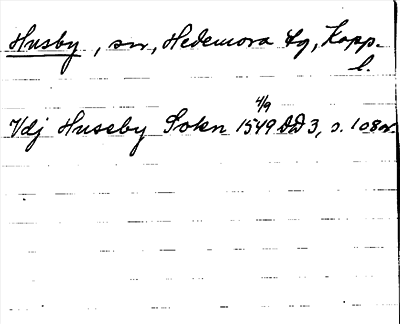 Husby, sn, Hedemora tg, Kopp.
l.
4/9
Vdj Huseby Sokn 1549 DD 3, s. 108 or.